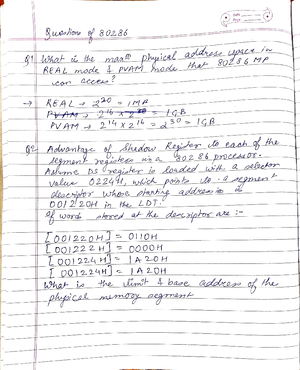 Questions of 80286
Q1 What is the maxm physical address space in
REAL mode & PVAM mode that 80286 MP
can access?
→ REAL → 2^20 = 1MB
PVAM → 2^16 x 2^30 = 1GB
PVAM → 2^14 x 2^16 = 2^30 = 1GB
Q2 Advantage of Shadow Register to each of the
segment registers in a 80286 processor.
Assume DS register is loaded with a selector
value 0224H, which points to a segment
descriptor whose starting address is
001220H in the LDT.
of word stored at the descriptor are :-
[001220H] = 0110H
[001222H] = 0000H
[001224H] = 1A20H
[001224H] = 1A20H
What is the limit & base address of the
physical memory segment